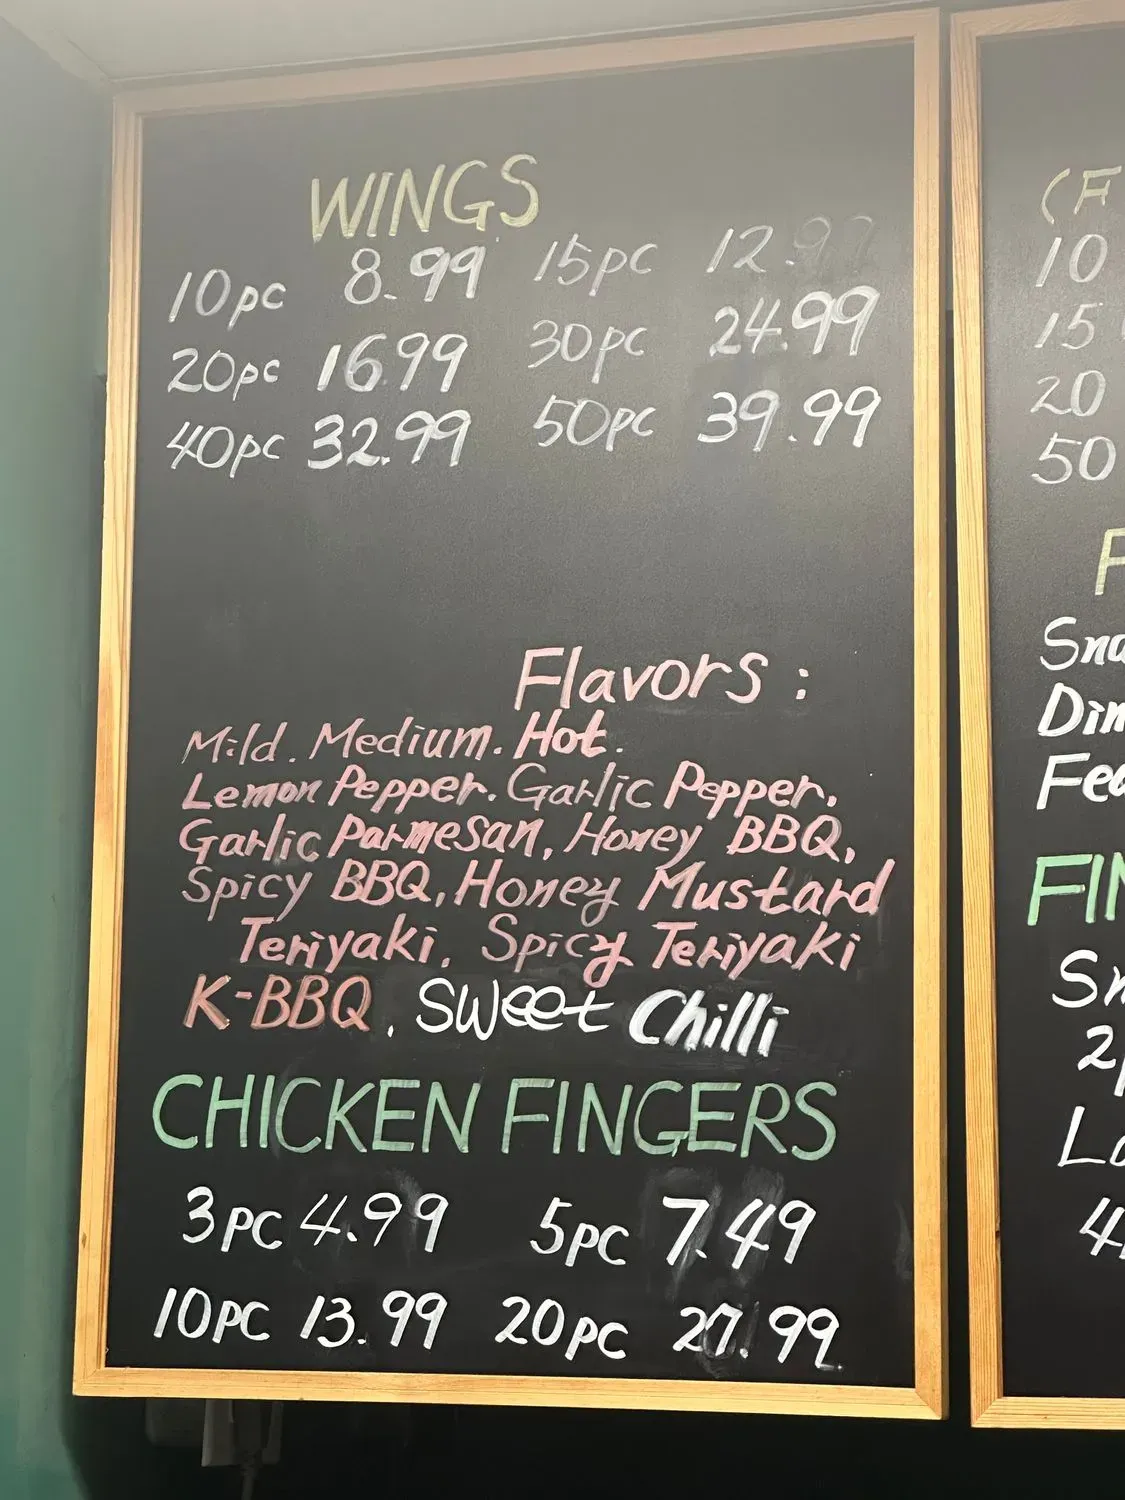 WINGS
10pc 8.99 15pc 12.99
20pc 1699 30pc 24.99
40pc 32.99 50pc 39.99
Flavors :
Mild. Medium. Hot.
Lemon Pepper. Garlic Pepper.
Garlic Parmesan, Honey BBQ,
Spicy BBQ, Honey Mustard
Teriyaki, Spicy Teriyaki
K-BBQ, Sweet Chilli
CHICKEN FINGERS
3PC 4.99 5pc 7.49
10PC 13.99 20pc 27.99
(F
10
15
20
50
Sna
Din
Fea
FIN
Sn
2p
La